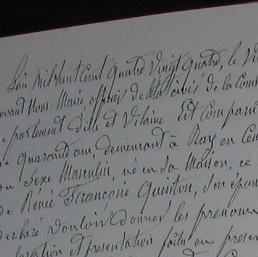 L'an mil huit cent quatre vingt quatre, le Vi
devant Nous Maire, officier de l'état civil de la Com
département d'Ille et Vilaine Est compar
de quarante ans, demeurant à
du Sexe Masculin, né en sa Maison, ce
de Réné Françoise Quinton, Son épou
déclaré Vouloir donner les prénoms
déclaration et présentation faite en prese